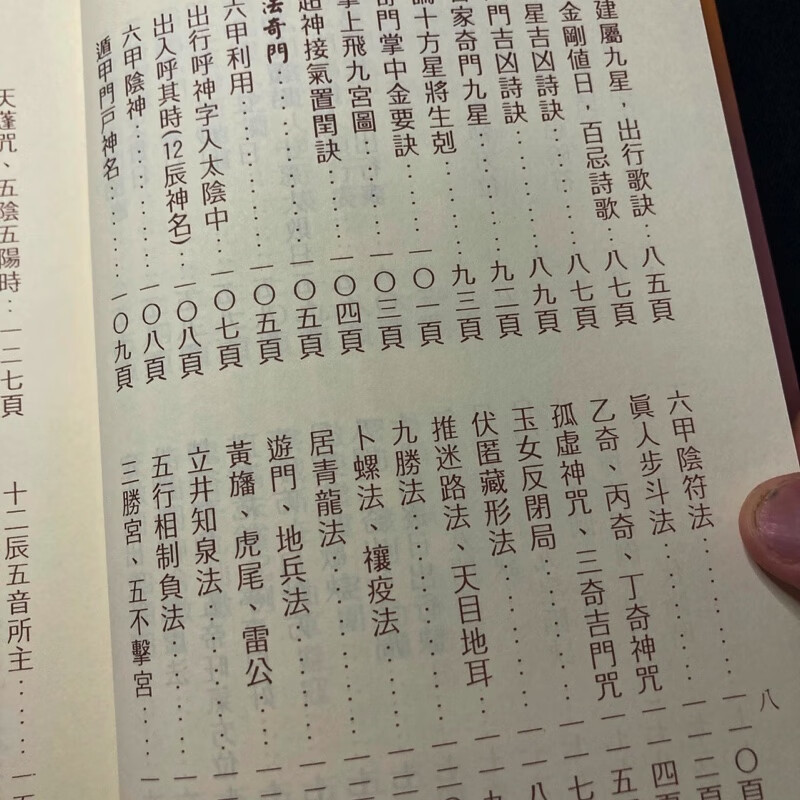 建屬九星，出行歌訣：八五頁
金剛値日，百忌詩歌……八七頁
星吉凶詩訣……八七頁
門吉凶詩訣……八九頁
家奇門九星……九二頁
十方星將生剋……九三頁
奇門掌中金要訣……一〇一頁
掌上飛九宮圖……一〇三頁
超神接氣置閏訣……一〇四頁
法奇門……一〇五頁
六甲利用……一〇五頁
出行呼神字入太陰中……一〇七頁
出入呼其時(12辰神名)……一〇八頁
六甲陰神……一〇八頁
遁甲門戸神名……一〇九頁
六甲陰符法……一一〇頁
眞人步斗法……一一二頁
乙奇、丙奇、丁奇神咒……一一四頁
孤虛神咒、三奇吉門咒
玉女反閉局
伏匿藏形法
推迷路法、天目地耳
九勝法
卜螺法、禳疫法
居青龍法
遊門、地兵法
黃旛、虎尾、雷公
立井知泉法
五行相制負法
三勝宮、五不擊宮
八
天蓬咒、五陰五陽時：一二七頁
十二辰五音所主